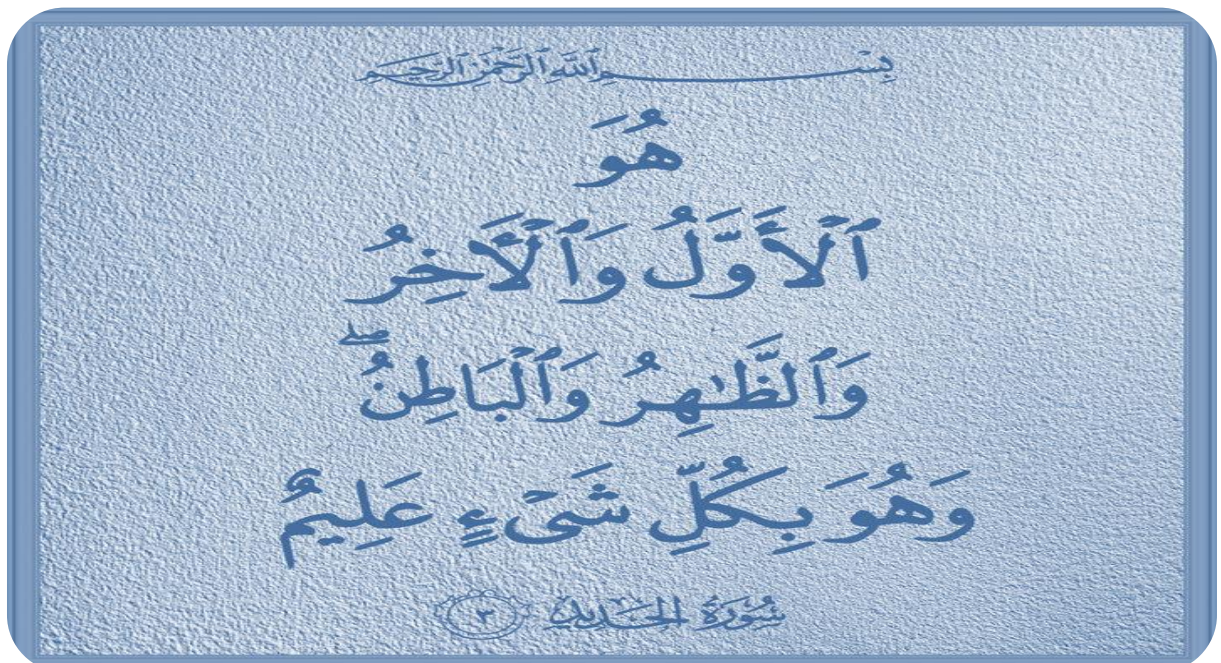 بِسْمِ ٱللَّهِ ٱلرَّحْمَٰنِ ٱلرَّحِيمِ
هُوَ
ٱلْأَوَّلُ وَٱلْأَخِرُ
وَٱلظَّٰهِرُ وَٱلْبَاطِنُ ۖ
وَهُوَ بِكُلِّ شَىْءٍ عَلِيمٌ
سُورَةُ الحَدِيدِ ٣